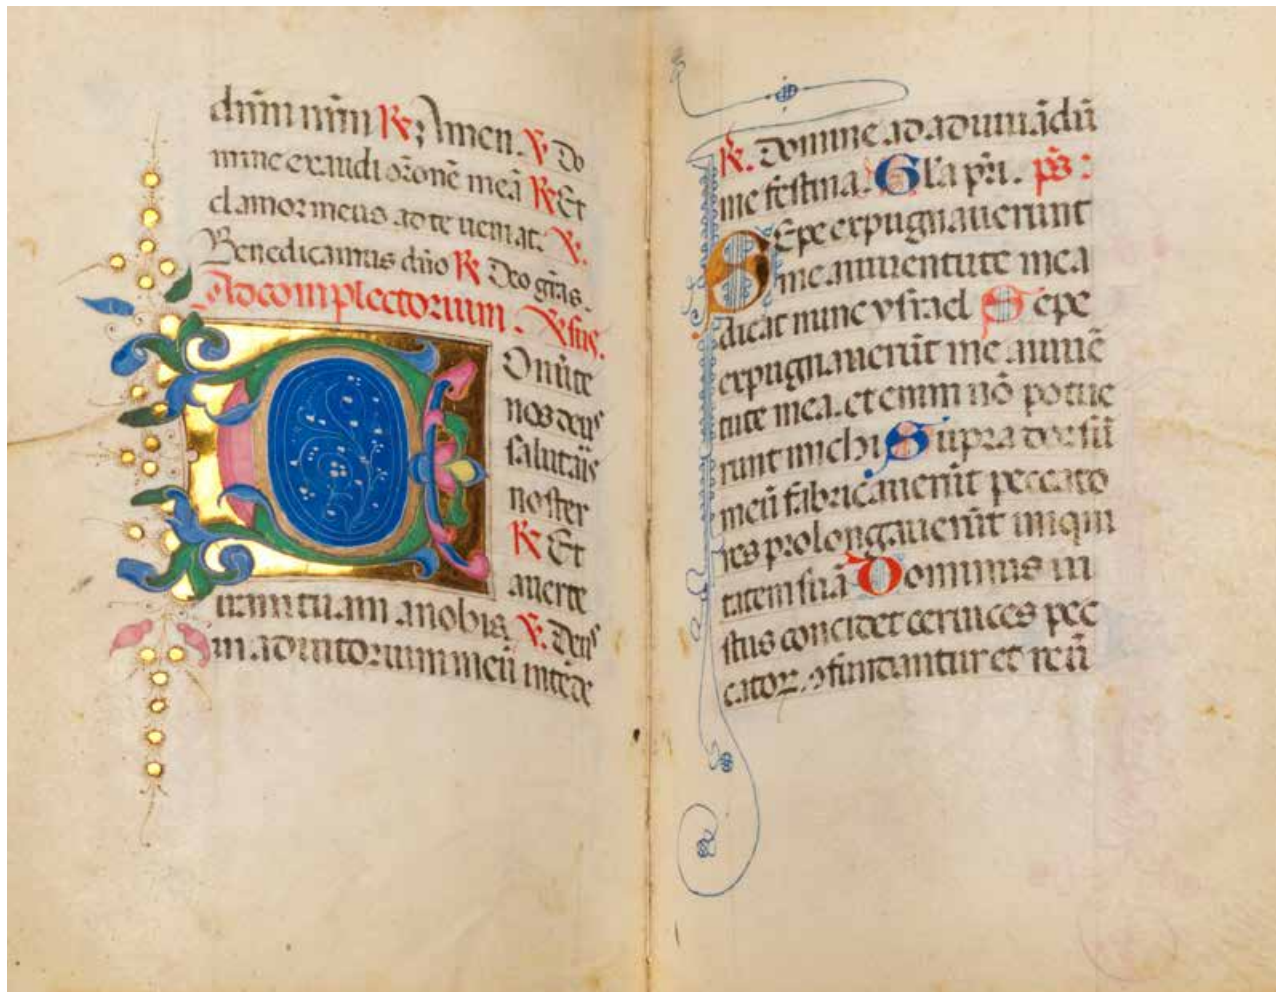 dūm nr̄m ℟ Amen. ℣ Do
mine exaudi or̄onē meā ℟ Et
clamor meus ad te ueniat. ℣.
Benedicamus dn̄o ℟ Deo gr̄as.
Ad complectorium. ℣sus.
Onūte
nos deus
salutāis
noster
℟ Et
auerte
iram tuam a nobis ℣. Deus
in adiutorium meū intēde
℟. Domine ad adiuuādū
me festina. Gl̄a pr̄i. ps̄:
SEpe expugnauerunt
me a iuuentute mea
dicat nunc ysrael Sepe
expugnauerūt me a iuuē
tute mea. et enim nō potue
runt michi Supra dorsū
meū fabricauerūt peccato
res prolongauerūt iniqui
tatem suā Dominus iu
stus concidet ceruices pec
catoꝝ. ꝯfundantur et reuē